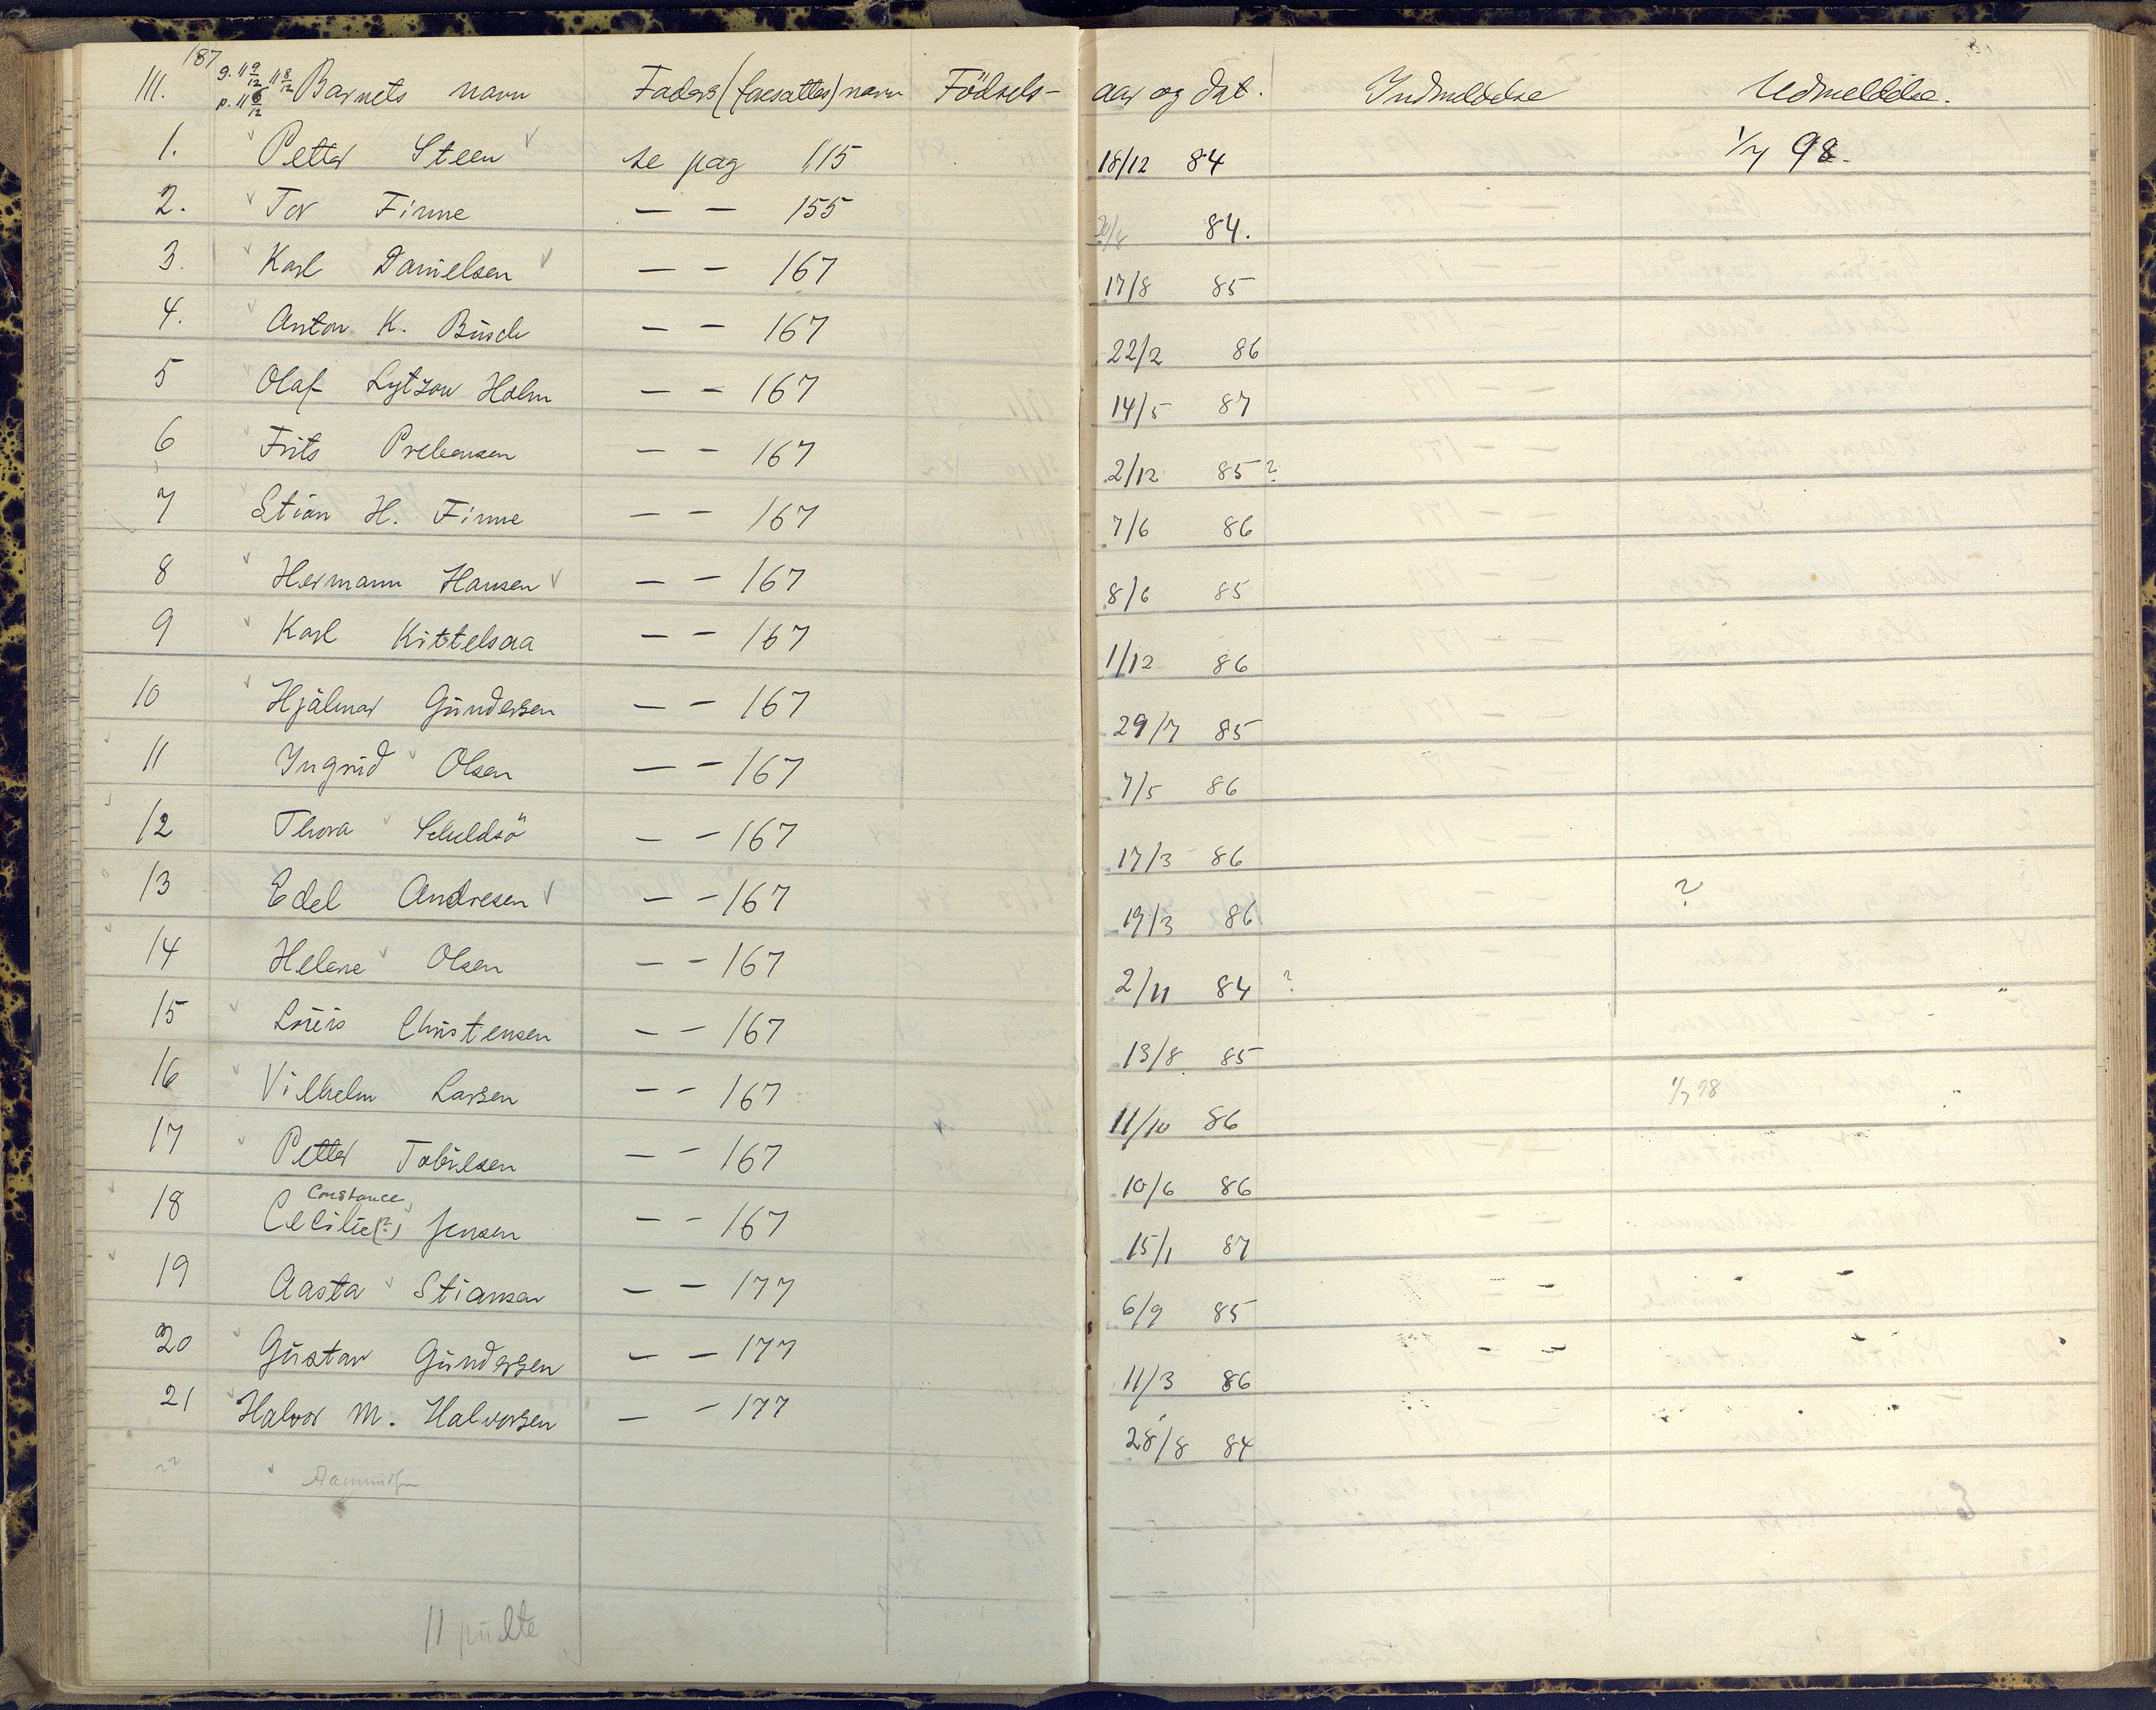 187
III. g. 11 9/12 11 8/12 Barnets navn Faders (foresattes) navn Födsels- aar og dat. Indmeldelse Udmeldelse.
p. 11 6/12
1. Petter Steen se pag 115 18/12 84 1/7 98.
2. Tor Finne — — 155 84.
3. Karl Danielsen — — 167 17/8 85
4. Anton K. Busch — — 167 22/2 86
5 Olaf Lytzow Holm — — 167 14/5 87
6 Frits Prebensen — — 167 2/12 85 ?
7 Stian H. Finne — — 167 7/6 86
8 Hermann Hansen — — 167 8/6 85
9 Karl Kittelsaa — — 167 1/12 86
10 Hjalmar Gundersen — — 167 29/7 85
11 Ingrid Olsen — — 167 7/5 86
12 Thora Schuldsö — — 167 17/3 86
13 Edel Andresen — — 167 19/3 86 ?
14 Helene Olsen — — 167 2/11 84 ?
15 Louis Christensen — — 167 13/8 85
16 Vilhelm Larsen — — 167 11/10 86 1/7 98
17 Petter Tobiesen — — 167 10/6 86
Constance
18 Cecilie (?) Jensen — — 167 15/1 87
19 Aasta Stiansen — — 177 6/9 85
20 Gustav Gundersen — — 177 11/3 86
21 Halvor M. Halvorsen — — 177 28/8 84
22
11 pulte